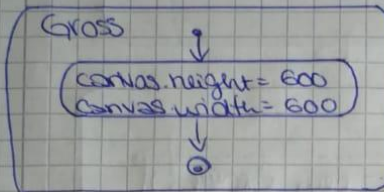 Gross
canvas.height = 600
canvas.width = 600